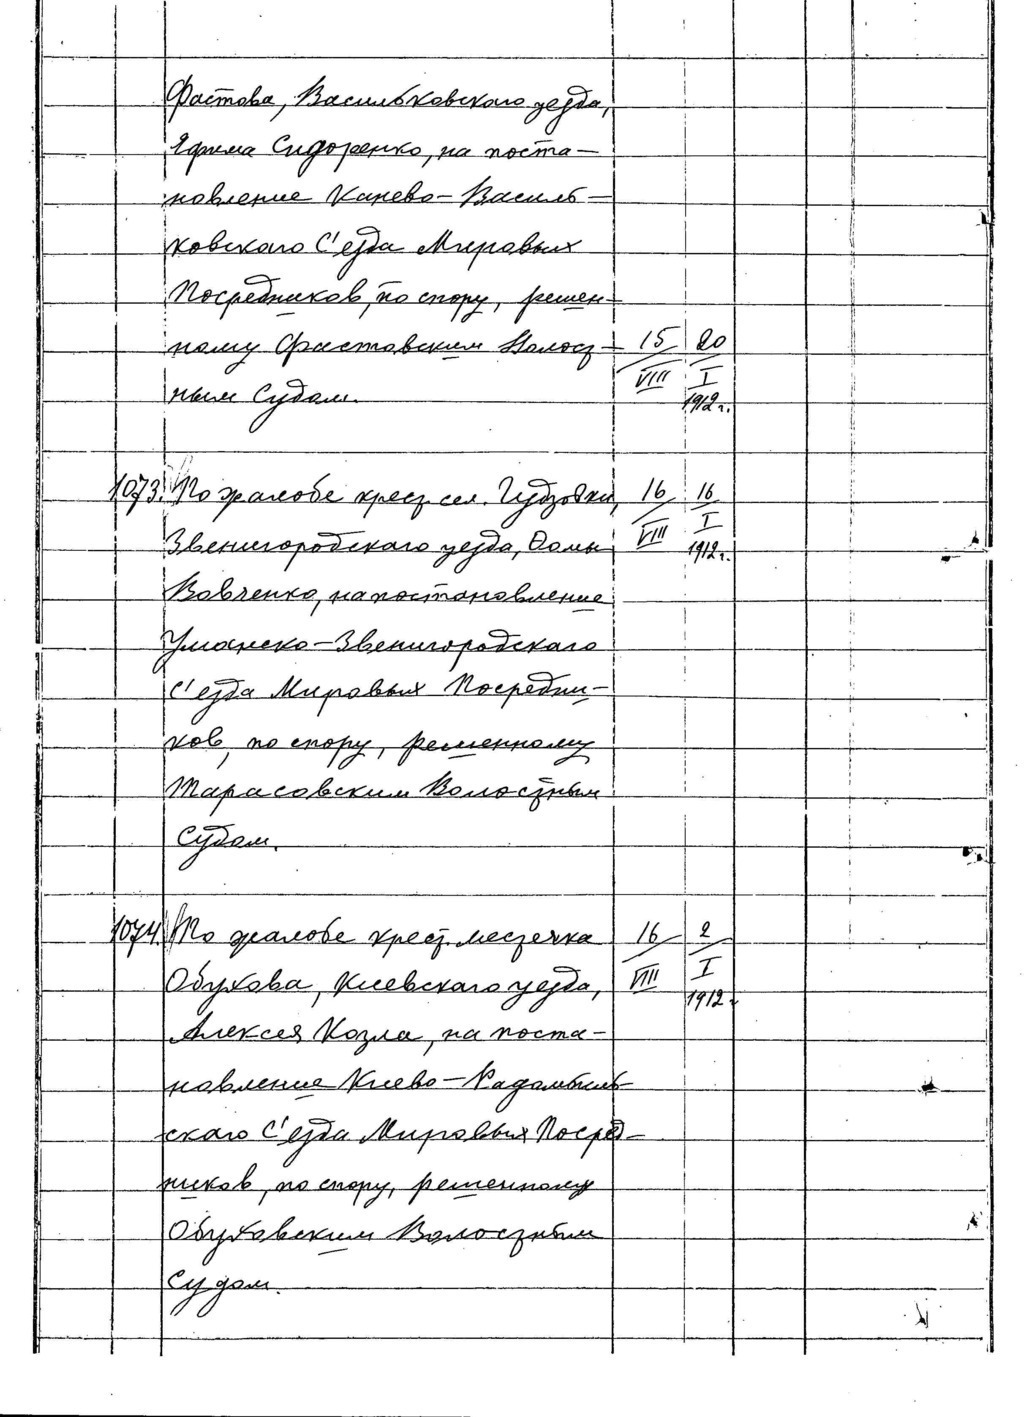 Фастова, Васильковского уезда,
Ефима Сидоренко, на поста-
новление Канево-Василь-
ковского С'езда Мировых
Посредников, по спору, решен-
ному Фастовским Волост- 15/VIII 20/I
ным Судом. 1912 г.
1073. По жалобе крест. сел. Гудзовки, 16/VIII 16/I
Звенигородского уезда, Фомы 1912 г.
Вовченко, на постановление
Уманско-Звенигородского
С'езда Мировых Посредни-
ков, по спору, решенному
Тарасовским Волостным
Судом.
1074. По жалобе крест. местечка 16/VIII 2/I
Обухова, Киевского уезда, 1912 г.
Алексея Козла, на поста-
новление Киево-Радомысль-
скаго С'езда Мировых Посред-
ников, по спору, решенному
Обуховским Волостным
Судом.